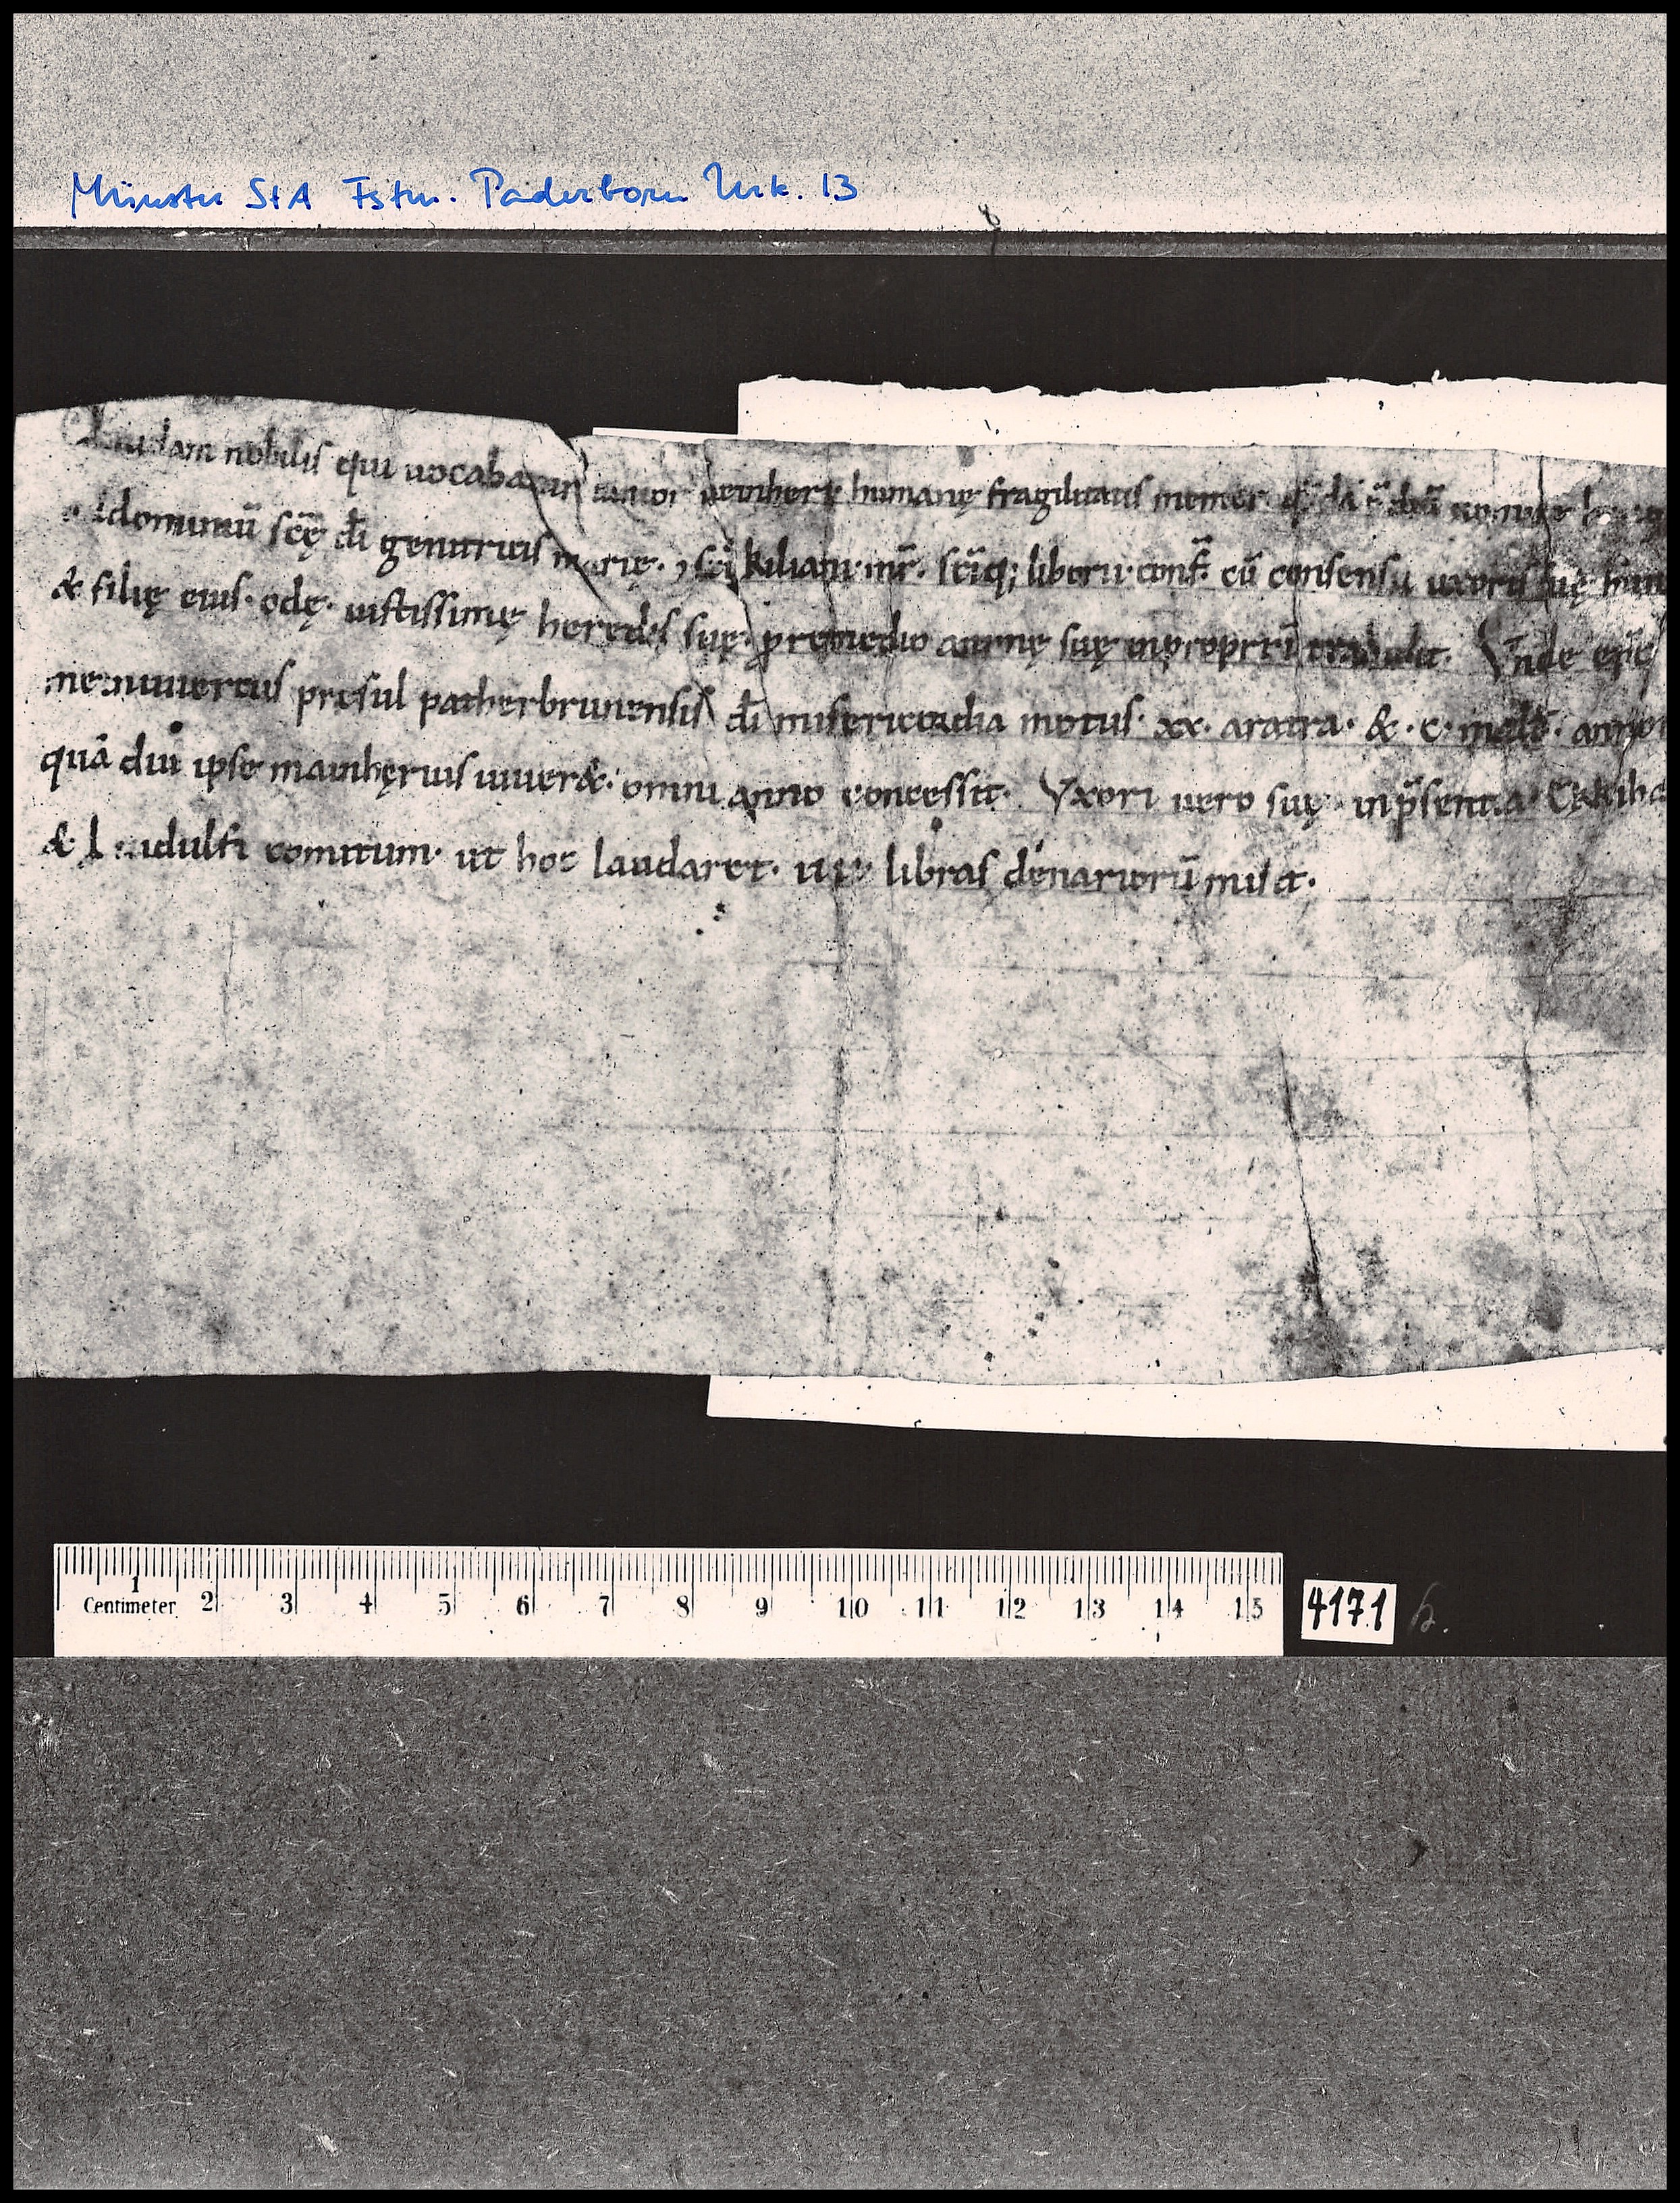 Münster StA Fstm. Paderborn Urk. 13
nobilis qui vocabatur maior meinhere humanę fragilitatis memor
dominiū scę di genitricis marię. ⁊ sci kiliani mr̄. sciq; liborii conf̄. cū consensu uxoris suę
& filię eius odę iustissimę heredis suę p remedio animę suę inpropriū tradidit. Vnde
presul patherbrunensis di misericordia motus xx. aratra. & . c. malt̄.
quā diu ipse mainhęrius uiueret. omni anno concessit. Vxori uero suę in p̄sentia Ekkiha
& comitum. ut hoc laudaret. libras denariorū misit.
Centimeter 1 2 3 4 5 6 7 8 9 10 11 12 13 14 15
4171 b.